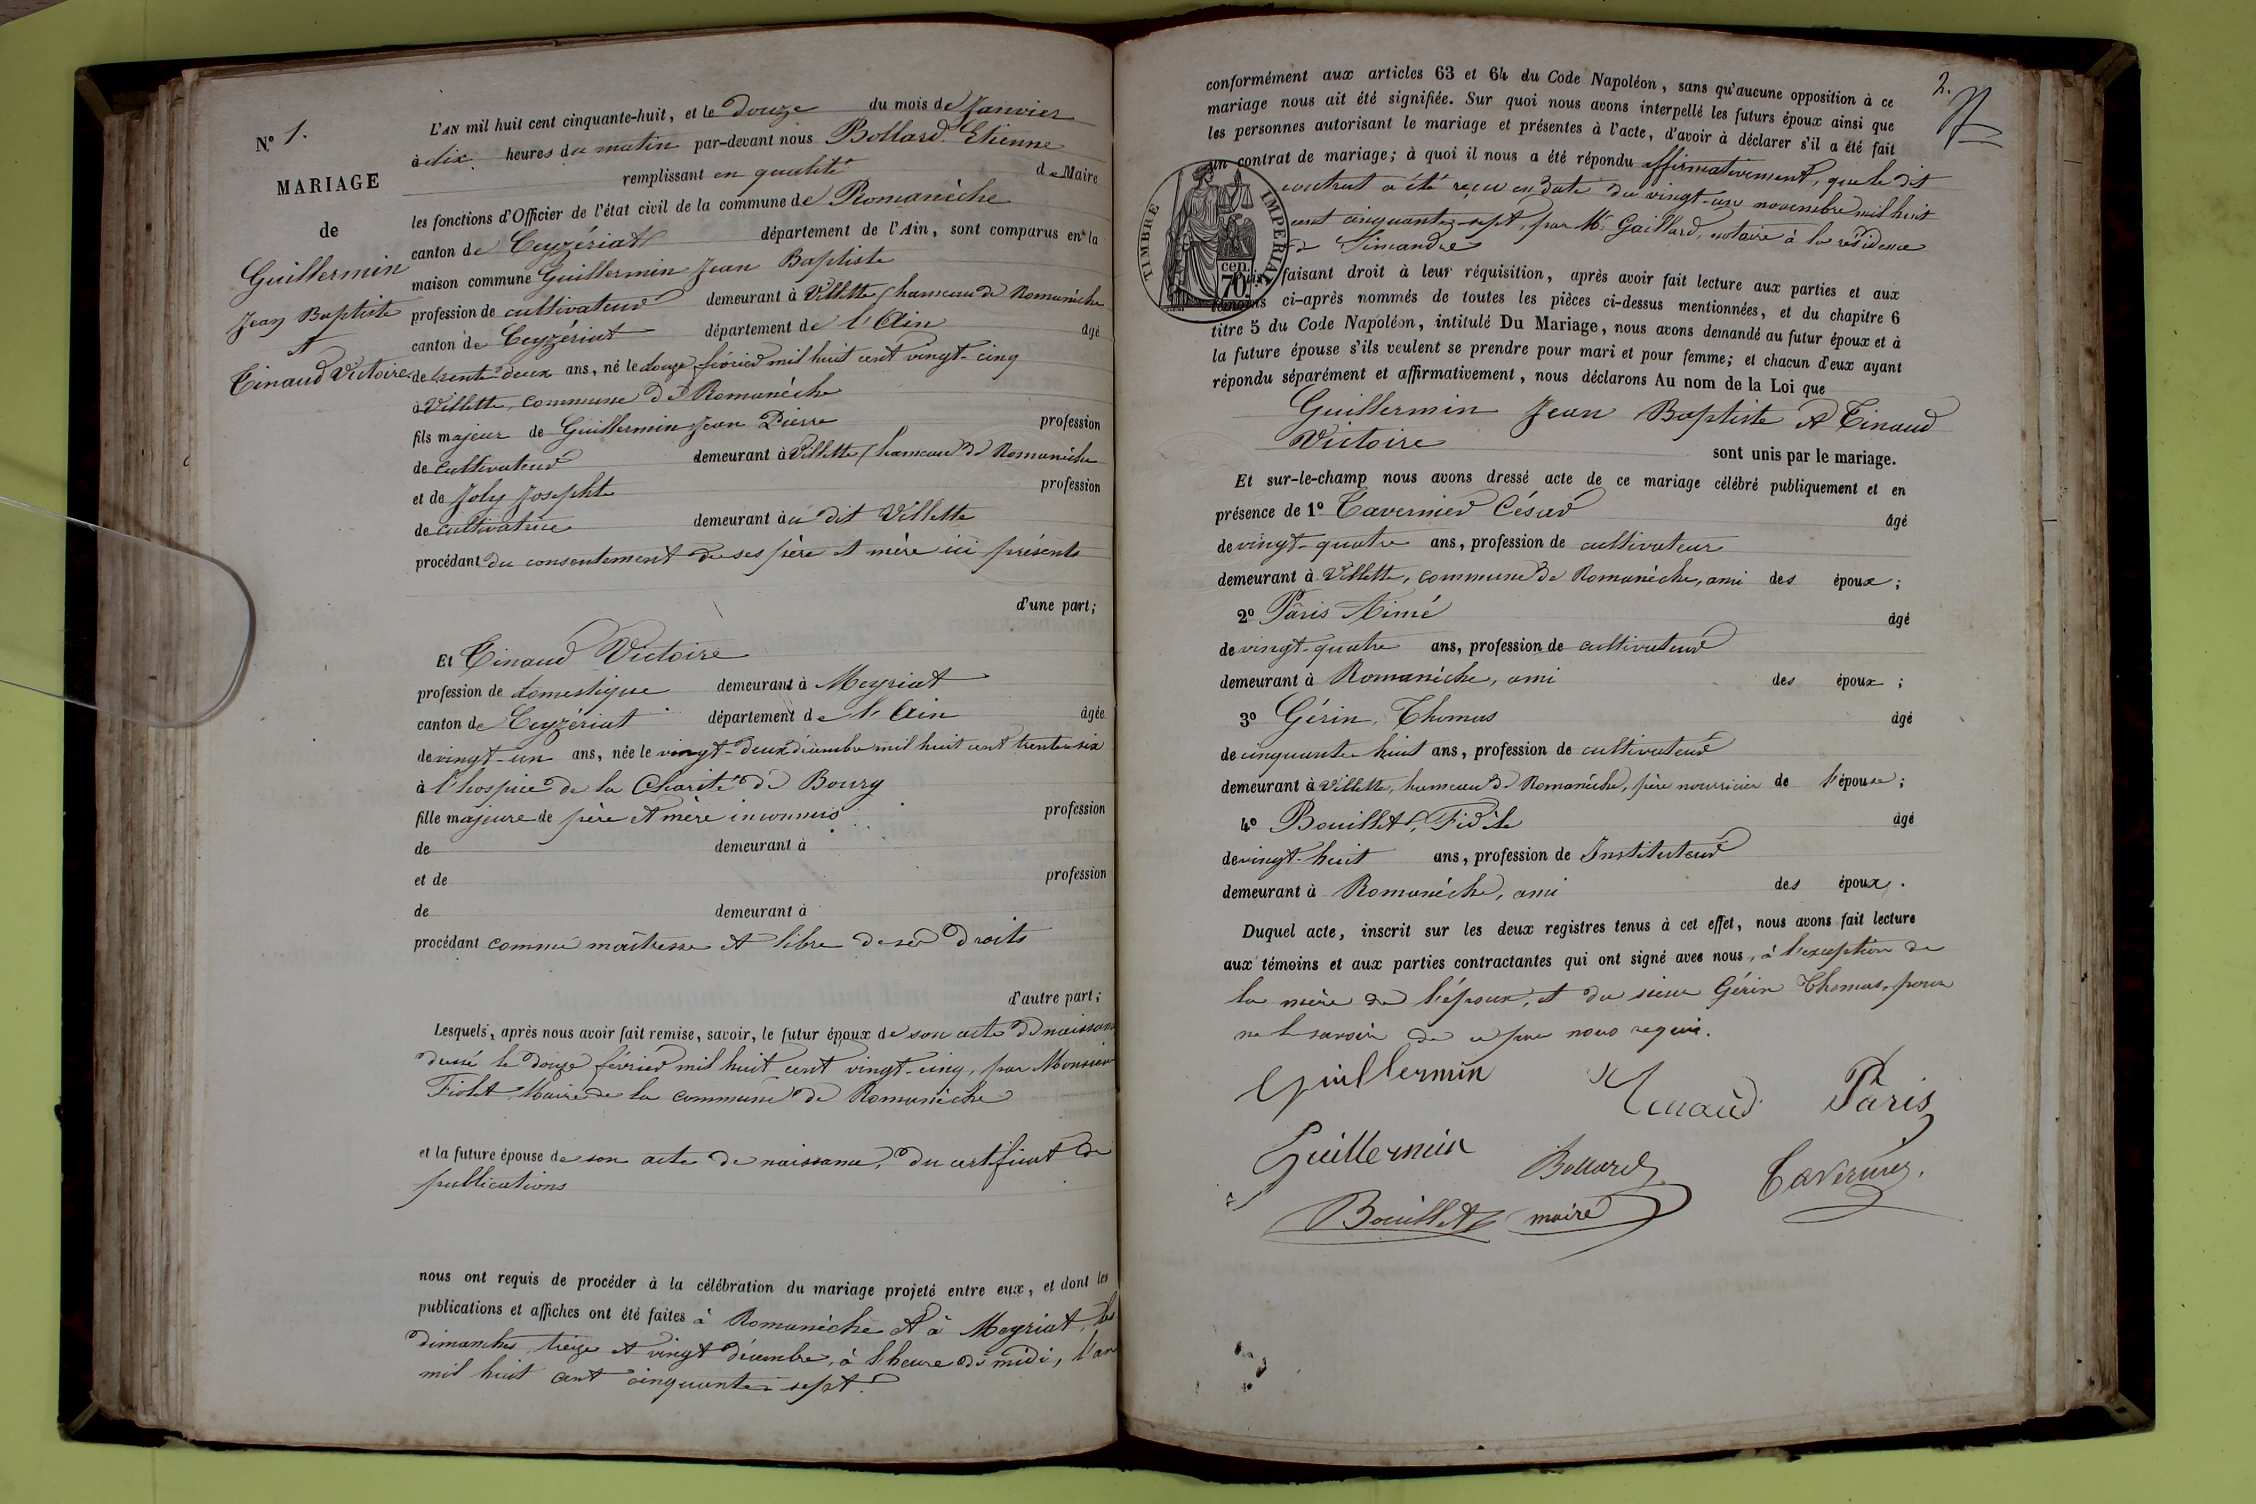 N° 1.
MARIAGE
de
Guillermin
Jean Baptiste
et
Tinaud Victoire
L'AN mil huit cent cinquante-huit, et le douze du mois de Janvier
à dix heures du matin par-devant nous Bollard Etienne
remplissant en qualité de Maire
les fonctions d'Officier de l'état civil de la commune de Romanèche
canton de Ceyzériat département de l'Ain, sont comparus en la
maison commune Guillermin Jean Baptiste
profession de cultivateur demeurant à Villette, hameau de Romanèche
canton de Ceyzériat département de l'Ain âgé
de trente deux ans, né le douze février mil huit cent vingt-cinq
à Villette, commune de Romanèche
fils majeur de Guillermin Jean Pierre profession
de cultivateur demeurant à Villette, hameau de Romanèche
et de Joly Josephte profession
de cultivatrice demeurant à u dit Villette
procédant du consentement de ses père et mère ici présents
d'une part;
Et Tinaud Victoire
profession de domestique demeurant à Meyriat
canton de Ceyzériat département de l'Ain âgée
de vingt-un ans, née le vingt-deux décembre mil huit cent trente-six
à l'hospice de la Charité de Bourg
fille majeure de père et mère inconnus profession
de demeurant à
et de profession
de demeurant à
procédant comme maîtresse et libre de ses droits
d'autre part;
Lesquels, après nous avoir fait remise, savoir, le futur époux de son acte de naissance
dressé le douze février mil huit cent vingt-cinq, par Monsieur
Fiolet, Maire de la commune de Romanèche
et la future épouse de son acte de naissance, du certificat de
publications
nous ont requis de procéder à la célébration du mariage projeté entre eux, et dont les
publications et affiches ont été faites à Romanèche et à Meyriat, les
dimanches treize et vingt décembre, à l'heure de midi, l'an
mil huit cent cinquante-sept.
2.
conformément aux articles 63 et 64 du Code Napoléon, sans qu'aucune opposition à ce
mariage nous ait été signifiée. Sur quoi nous avons interpellé les futurs époux ainsi que
les personnes autorisant le mariage et présentes à l'acte, d'avoir à déclarer s'il a été fait
un contrat de mariage; à quoi il nous a été répondu affirmativement, que le dit
contrat a été reçu en date du vingt-un novembre mil huit
cent cinquante-sept, par Me Gaillard, notaire à la résidence
de Simandre
TIMBRE IMPERIAL
cen. 70
Puis, faisant droit à leur réquisition, après avoir fait lecture aux parties et aux
témoins ci-après nommés de toutes les pièces ci-dessus mentionnées, et du chapitre 6
titre 5 du Code Napoléon, intitulé Du Mariage, nous avons demandé au futur époux et à
la future épouse s'ils veulent se prendre pour mari et pour femme; et chacun d'eux ayant
répondu séparément et affirmativement, nous déclarons Au nom de la Loi que
Guillermin Jean Baptiste et Tinaud
Victoire
sont unis par le mariage.
Et sur-le-champ nous avons dressé acte de ce mariage célébré publiquement et en
présence de 1° Tavernier César âgé
de vingt-quatre ans, profession de cultivateur
demeurant à Villette, commune de Romanèche, ami des époux;
2° Pâris Aimé âgé
de vingt-quatre ans, profession de cultivateur
demeurant à Romanèche, ami des époux;
3° Gérin Thomas âgé
de cinquante huit ans, profession de cultivateur
demeurant à Villette, hameau de Romanèche, père nourricier de l'épouse;
4° Bouillet, Fidèle âgé
de vingt-huit ans, profession de Instituteur
demeurant à Romanèche, ami des époux.
Duquel acte, inscrit sur les deux registres tenus à cet effet, nous avons fait lecture
aux témoins et aux parties contractantes qui ont signé avec nous, à l'exception de
la mère de l'époux, et du sieur Gérin Thomas, pour
ne le savoir de ce par nous requis.
Guillermin Tinaud Pâris
Guillermin Bollard Tavernier
Bouillet maire